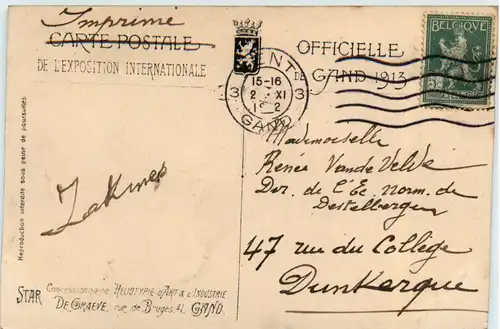 Imprime
CARTE POSTALE
OFFICIELLE
DE L'EXPOSITION INTERNATIONALE
DE GAND 1913
GENT
15-16
2 XI
1 2
3 3
GAND
BELGIQUE
Mademoiselle
Renée Vande Velde
Der. de l'Ec. norm. de
Destelbergen
47 rue du Collège
Dunkerque
Reproduction interdite sous peine de poursuites
STAR Concessionnaire HELIOTYPIE d'ART & d'INDUSTRIE
DE GRAEVE, rue de Bruges, 41. GAND.